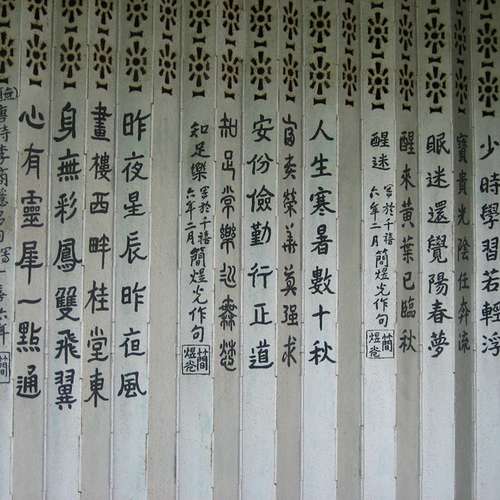 少時學習若輕浮
寶貴光陰任奔流
眠迷還覺陽春夢
醒來黃葉已臨秋
醒迷 寫於千禧六年二月簡煜光作句 簡煜
人生寒暑數十秋
富貴榮華莫强求
安份儉勤行正道
知足常樂
知足樂 寫於千禧六年二月簡煜光作句 簡煜
昨夜星辰昨夜風
畫樓西畔桂堂東
身無彩鳳雙飛翼
心有靈犀一點通
唐詩李商隱名句 六年 簡